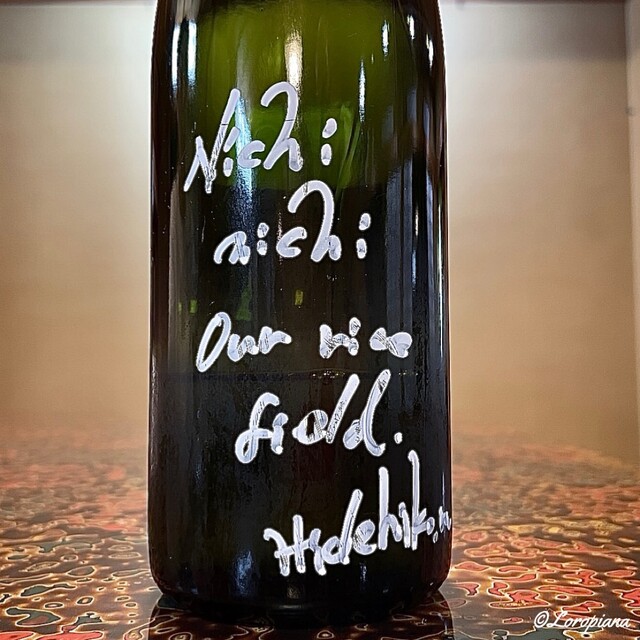 Nichi
nichi
Our rice
field.
Hidehiko.M
©Loropiana